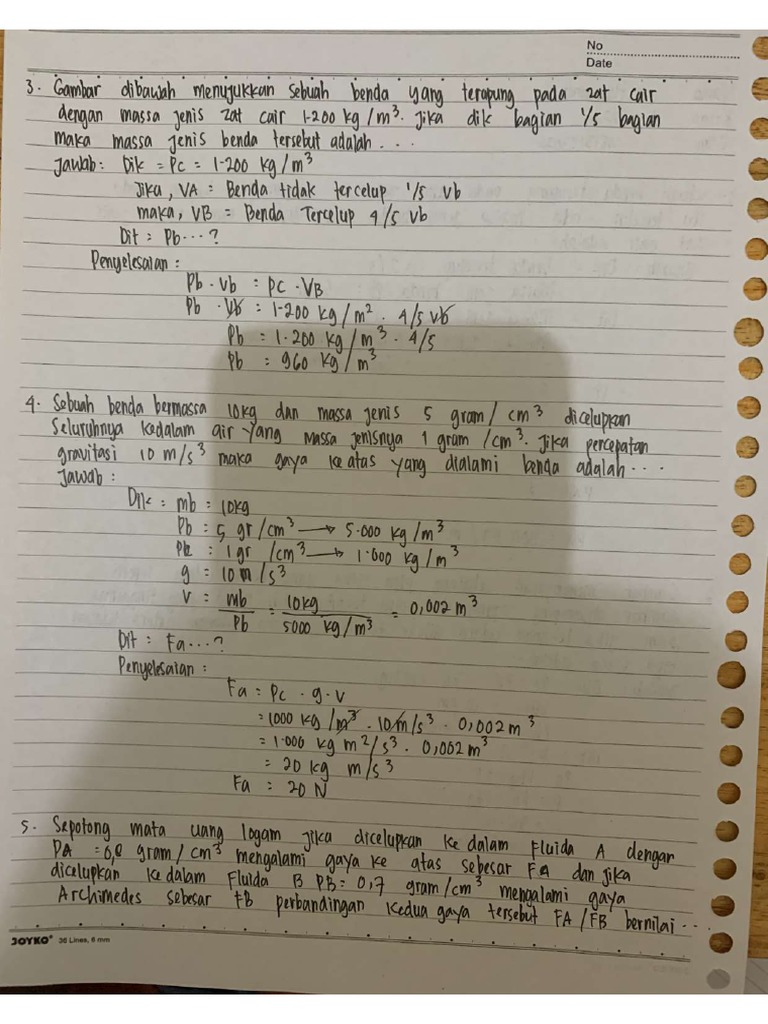 No
Date
3. Gambar dibawah menujukkan sebuah benda yang terapung pada zat cair
dengan massa jenis zat cair 1.200 kg/m³. Jika dik bagian 1/5 bagian
maka massa jenis benda tersebut adalah...
Jawab: Dik = Pc = 1.200 kg/m³
Jika, VA = Benda tidak tercelup 1/5 Vb
maka, VB = Benda Tercelup 4/5 Vb
Dit : Pb...?
Penyelesaian :
Pb . Vb = Pc . VB
Pb . Vb = 1.200 kg/m² . 4/5 Vb
Pb = 1.200 kg/m³ . 4/5
Pb = 960 kg/m³
4. Sebuah benda bermassa 10kg dan massa jenis 5 gram/cm³ dicelupkan
Seluruhnya kedalam air yang massa jenisnya 1 gram/cm³. Jika percepatan
gravitasi 10 m/s³ maka gaya keatas yang dialami benda adalah...
Jawab :
Dik = mb = 10kg
Pb = 5 gr/cm³ → 5.000 kg/m³
= 1gr /cm³ → 1.000 kg/m³
g = 10 m/s³
V = mb/Pb = 10kg/5000 kg/m³ = 0,002 m³
Dit : Fa...?
Penyelesaian :
Fa = Pc . g . V
= 1000 kg/m³ . 10m/s³ . 0,002 m³
= 1.000 kg m²/s³ . 0,002 m³
= 20 kg m/s³
Fa = 20 N
5. Sepotong mata uang logam jika dicelupkan ke dalam Fluida A dengan
PA = gram/cm³ mengalami gaya ke atas sebesar FA dan jika
dicelupkan kedalam Fluida B PB = 0,7 gram/cm³ mengalami gaya
Archimedes sebesar FB perbandingan kedua gaya tersebut FA/FB bernilai...
JOYKO 36 Lines, 6 mm